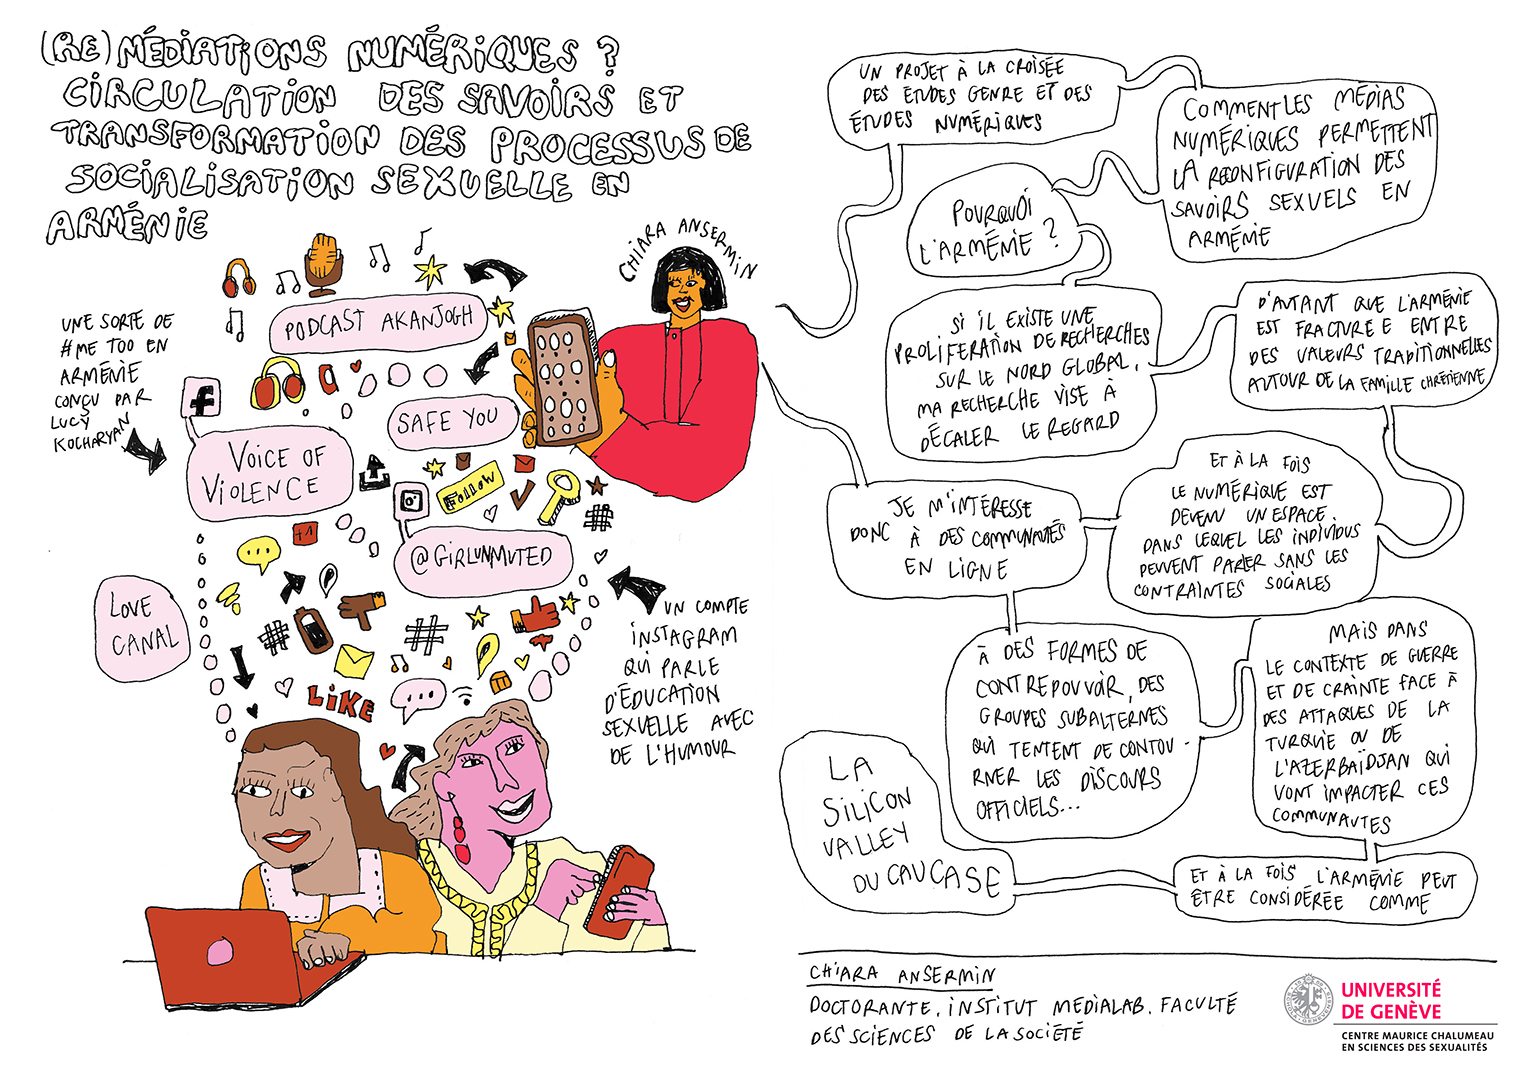 (RE)MÉDIATIONS NUMÉRIQUES ?
CIRCULATION DES SAVOIRS ET
TRANSFORMATION DES PROCESSUS DE
SOCIALISATION SEXUELLE EN
ARMÉNIE
CHIARA ANSERMIN
UNE SORTE DE
#ME TOO EN
ARMÉNIE
CONÇU PAR
LUCY
KOCHARYAN
PODCAST AKANJOGH
SAFE YOU
VOICE OF
VIOLENCE
FOLLOW
+1
@GIRLUNMUTED
LOVE
CANAL
LIKE
UN COMPTE
INSTAGRAM
QUI PARLE
D'ÉDUCATION
SEXUELLE AVEC
DE L'HUMOUR
UN PROJET À LA CROISÉE
DES ETUDES GENRE ET DES
ÉTUDES NUMÉRIQUES
COMMENT LES MEDIAS
NUMÉRIQUES PERMETTENT
LA RECONFIGURATION DES
SAVOIRS SEXUELS EN
ARMÉNIE
POURQUOI
L'ARMÉNIE ?
SI IL EXISTE UNE
PROLIFERATION DE RECHERCHES
SUR LE NORD GLOBAL,
MA RECHERCHE VISE À
DÉCALER LE REGARD
D'AUTANT QUE L'ARMÉNIE
EST FRACTUREE ENTRE
DES VALEURS TRADITIONNELLES
AUTOUR DE LA FAMILLE CHRÉTIENNE
ET À LA FOIS
LE NUMÉRIQUE EST
DEVENU UN ESPACE
DANS LEQUEL LES INDIVIDUS
PEUVENT PARLER SANS LES
CONTRAINTES SOCIALES
JE M'INTÉRESSE
DONC À DES COMMUNAUTÉS
EN LIGNE
À DES FORMES DE
CONTREPOUVOIR, DES
GROUPES SUBALTERNES
QUI TENTENT DE CONTOU-
RNER LES DISCOURS
OFFICIELS...
MAIS DANS
LE CONTEXTE DE GUERRE
ET DE CRAINTE FACE À
DES ATTAQUES DE LA
TURQUIE OU DE
L'AZERBAÏDJAN QUI
VONT IMPACTER CES
COMMUNAUTES
ET À LA FOIS L'ARMÉNIE PEUT
ÊTRE CONSIDÉRÉE COMME
LA
SILICON
VALLEY
DU CAUCASE
CHIARA ANSERMIN
DOCTORANTE, INSTITUT MEDIALAB. FACULTÉ
DES SCIENCES DE LA SOCIÉTÉ
UNIVERSITÉ
DE GENÈVE
CENTRE MAURICE CHALUMEAU
EN SCIENCES DES SEXUALITÉS